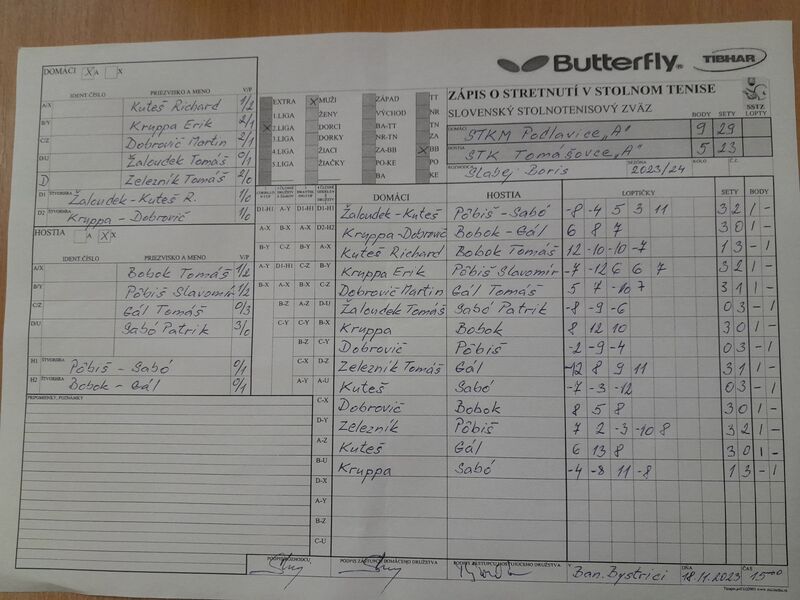 Butterfly TIBHAR
ZÁPIS O STRETNUTÍ V STOLNOM TENISE
SLOVENSKÝ STOLNOTENISOVÝ ZVÄZ
SSTZ
BODY SETY LOPTY
DOMÁCI STKM Podlavice „A" 9 29
HOSTIA STK Tomášovce „A" 5 23
Slabej Boris SEZÓNA 2023/24 KOLO Č.Z.
DOMÁCI X A X
IDENT.ČÍSLO PRIEZVISKO A MENO V/P
A/X Kuteš Richard 1/2
B/Y Kruppa Erik 2/1
C/Z Dobrovič Martin 2/1
D/U Žaloudek Tomáš 0/1
D Železník Tomáš 2/0
D1 ŠTVORHRA Žaloudek - Kuteš R. 1/0
D2 ŠTVORHRA Kruppa - Dobrovič 1/0
HOSTIA A X X
IDENT.ČÍSLO PRIEZVISKO A MENO V/P
A/X Bobok Tomáš 1/2
B/Y Pôbiš Slavomír 1/2
C/Z Gál Tomáš 0/3
D/U Sabó Patrik 3/0
H1 ŠTVORHRA Pôbiš - Sabó 0/1
H2 ŠTVORHRA Bobok - Gál 0/1
PRIPOMIENKY, POZNÁMKY
EXTRA X MUŽI ZÁPAD TT
1.LIGA ŽENY VÝCHOD NR
X 2.LIGA DORCI BA-TT TN
3.LIGA DORKY NR-TN ZA
4.LIGA ŽIACI ZA-BB X BB
5.LIGA ŽIAČKY PO-KE PO
BA KE
DOMÁCI HOSTIA LOPTIČKY SETY BODY
D1-H1 A-Y D1-H1 D1-H1 Žaloudek - Kuteš Pôbiš - Sabó -8 -4 5 3 11 3 2 1 -
A-X B-X A-X D2-H2 Kruppa - Dobrovič Bobok - Gál 6 8 7 3 0 1 -
B-Y C-Z B-Y A-X Kuteš Richard Bobok Tomáš 12 -10 -10 -7 1 3 - 1
A-Y D1-H1 C-Z B-Y Kruppa Erik Pôbiš Slavomír -7 -12 6 6 7 3 2 1 -
B-X A-X B-X C-Z Dobrovič Martin Gál Tomáš 5 7 -10 7 3 1 1 -
B-Z A-Z D-U Žaloudek Tomáš Sabó Patrik -8 -9 -6 0 3 - 1
C-Y C-Y B-X Kruppa Bobok 8 12 10 3 0 1 -
B-Z C-Y Dobrovič Pôbiš -2 -9 -4 0 3 - 1
C-X D-Z Železník Tomáš Gál -12 8 9 11 3 1 1 -
A-Y A-U Kuteš Sabó -7 -3 -12 0 3 - 1
C-X Dobrovič Bobok 8 5 8 3 0 1 -
D-Y Železník Pôbiš 7 2 -3 -10 8 3 2 1 -
A-Z Kuteš Gál 6 13 8 3 0 1 -
B-U Kruppa Sabó -4 -8 11 -8 1 3 - 1
D-X
A-Y
B-Z
C-U
PODPIS ROZHODCU PODPIS ZÁSTUPCU DOMÁCEHO DRUŽSTVA PODPIS ZÁSTUPCU HOSŤUJÚCEHO DRUŽSTVA V Ban. Bystrici DŇA 18.11.2023 ČAS 15:00